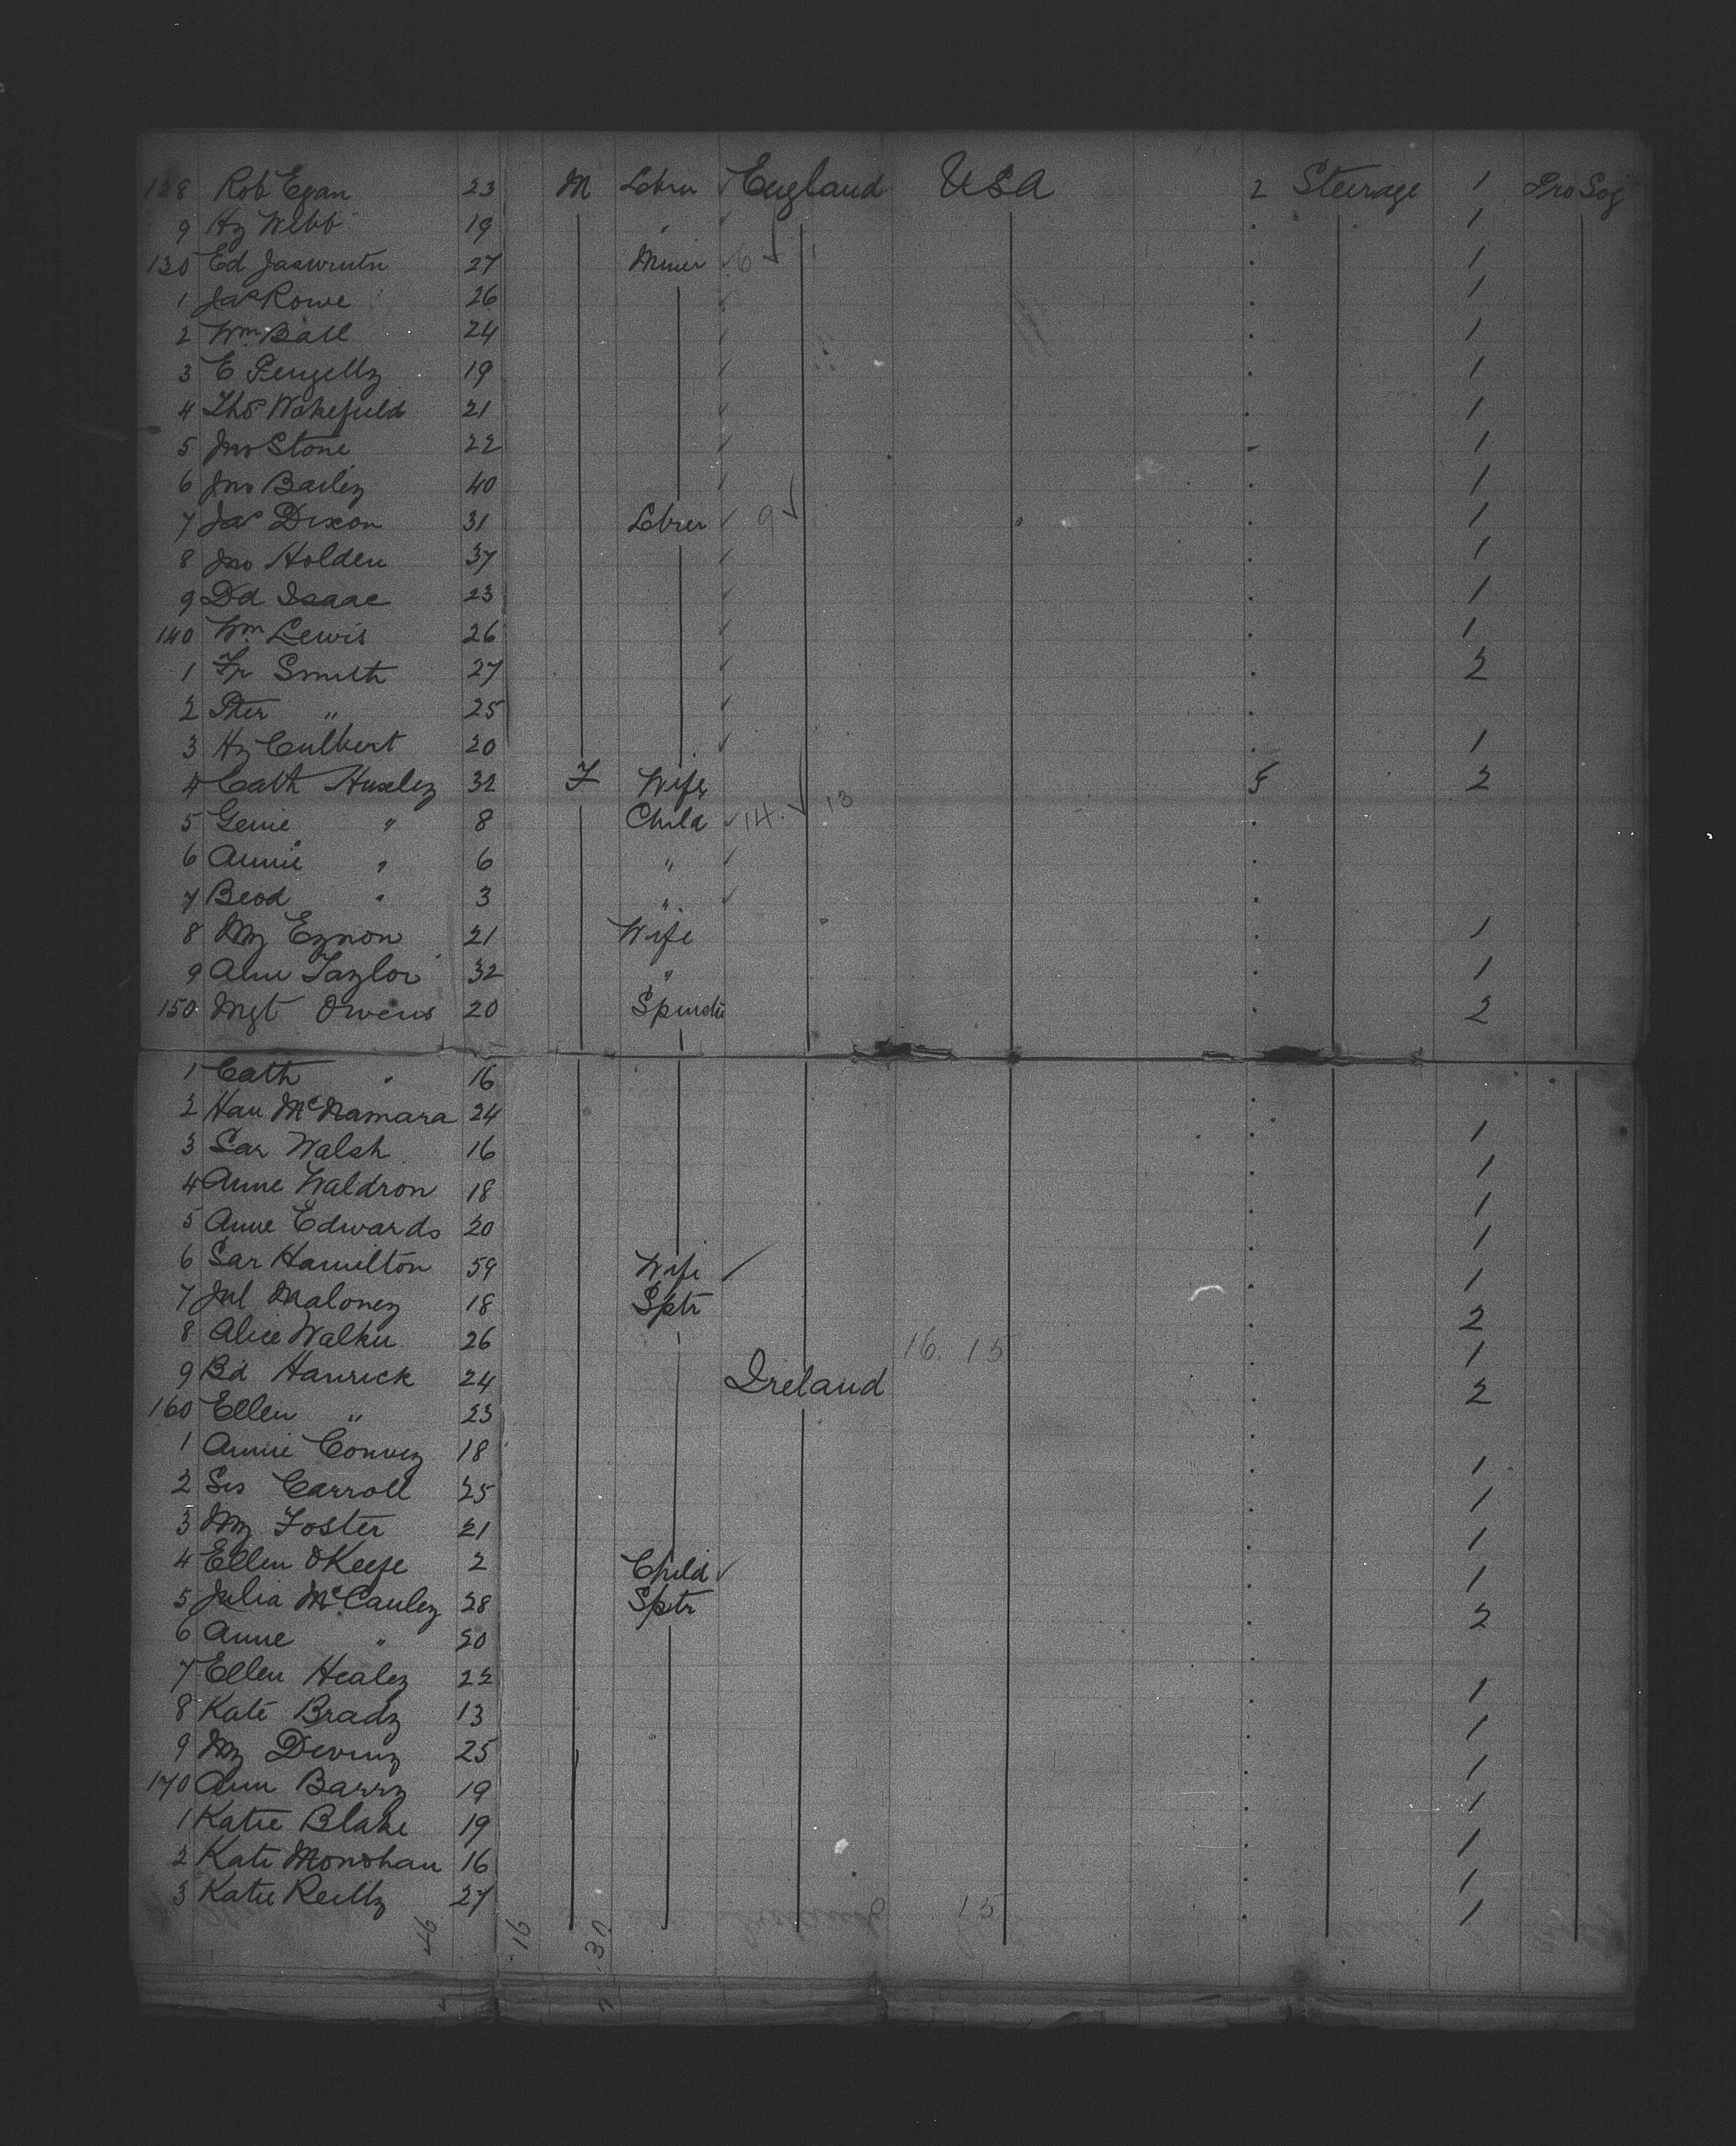 128 Rob Egan 23 M Lbrer England USA 2 Steerage 1 Pro Soj
9 Hy Webb 19 " 1
130 Ed 27 Miner 6 1
1 Jas Rowe 26 1
2 Wm Ball 24 1
3 E Pengelly 19 1
4 Thos Wakefield 21 1
5 Jno Stone 22 1
6 Jno Bailey 40 1
7 Jas Dixon 31 Lbrer 9 1
8 Jno Holden 37 1
9 Dd Isaac 23 1
140 Wm Lewis 26 1
1 Fr Smith 27 2
2 Pter " 25
3 Hy Culbert 20 1
4 Cath Huxley 32 F Wife 5 2
5 Genie " 8 Child 14 13
6 Annie " 6 "
7 " 3 "
8 My Eynon 21 Wife 1
9 Ann Taylor 32 " 1
150 Mgt Owens 20 2
1 Cath " 16
2 Han McNamara 24 1
3 Sar Walsh 16 1
4 Anne Waldron 18 1
5 Anne Edwards 20 1
6 Sar Hamilton 59 Wife 1
7 Jul Maloney 18 Sptr 2
8 Alice Walker 26 16. 15 1
9 Bd Hanrick 24 Ireland 2
160 Ellen " 23
1 Annie Convey 18 1
2 Sis Carroll 25 1
3 My Foster 21 1
4 Ellen OKeefe 2 Child 1
5 Julia McCauley 28 Sptr 2
6 Anne " 20
7 Ellen Healey 22 1
8 Kate Brady 13 1
9 My Deviny 25 1
170 Ann Barry 19 1
1 Katie Blake 19 1
2 Kate Monohan 16 1
3 Katie Reilly 27 15 1
46 16 30